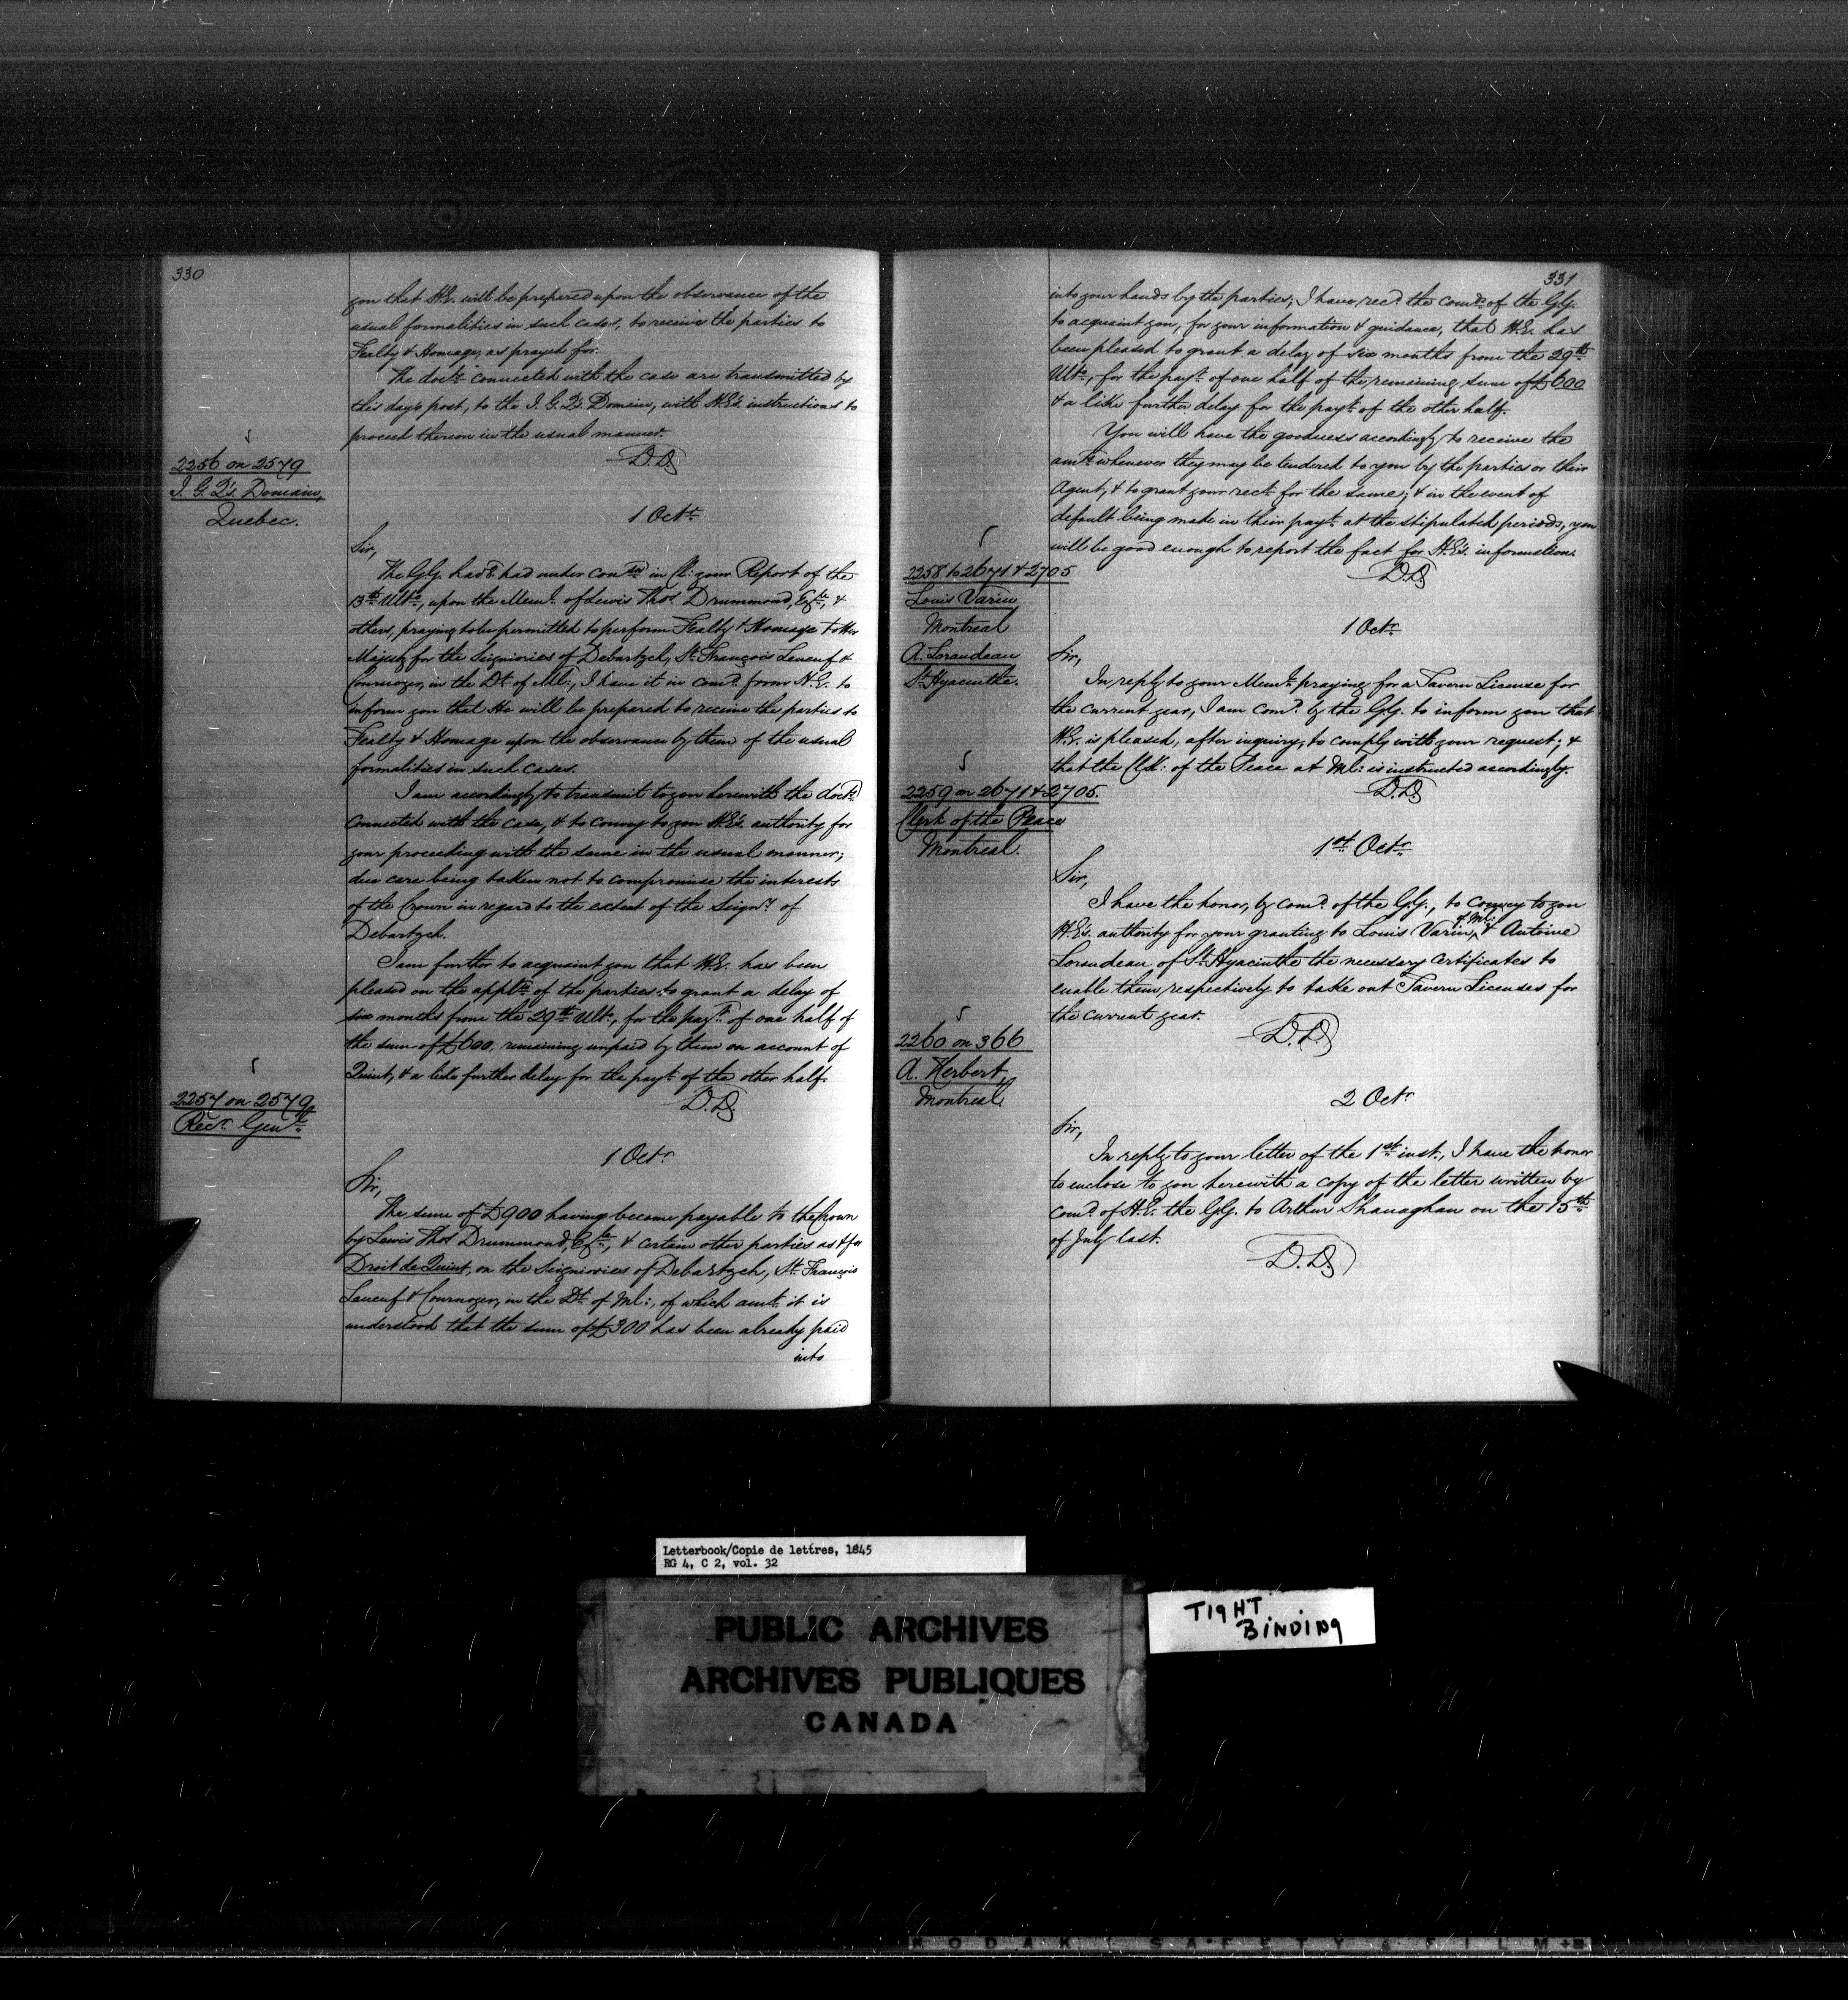 330
you that H.E. will be prepared upon the observance of the
usual formalities in such cases, to receive the parties to
Fealty & Homage, as prayed for.
The docts. connected with the case are transmitted by
this day's post, to the I. G. Q's. Domain, with H.E's. instructions to
proceed thereon in the usual manner.
D.D.
2256 on 2579
I. G. Q's. Domain,
Quebec.
1 Octr.
Sir,
The G.G. having had under conson. in Cl: your Report of the
13th Ulto., upon the Meml. of Lewis Thos. Drummond, Esqre., &
others, praying to be permitted to perform Fealty & Homage to Her
Majesty for the Seigniories of Debartzch, St. François Leneuf &
Cournoyer, in the Dt. of Ml:, I have it in comd. from H.E. to
inform you that He will be prepared to receive the parties to
Fealty & Homage upon the observance by them of the usual
formalities in such cases.
I am accordingly to transmit to you herewith the docts.
connected with the case, & to convey to you H.E's. authority for
your proceeding with the same in the usual manner;
due care being taken not to compromise the interests
of the Crown in regard to the extent of the Seigny. of
Debartzch.
I am further to acquaint you that H.E. has been
pleased on the appln. of the parties, to grant a delay of
six months from the 29th Ulto., for the payt. of one half of
the sum of £600, remaining unpaid by them on account of
Quint, & a like further delay for the payt. of the other half.
D.D.
2257 on 2579
Recr. Genl.
1 Octr.
Sir,
The sum of £900 having become payable to the Crown
by Lewis Thos. Drummond, Esqre., & certain other parties as & for
Droit de Quint, on the Seigniories of Debartzch, St. François
Leneuf & Cournoyer, in the Dt. of Ml:, of which amt. it is
understood that the sum of £300 has been already paid
into
331
into your hands by the parties; I have recd. the comds. of the G.G.
to acquaint you, for your information & guidance, that H.E. has
been pleased to grant a delay of six months from the 29th
Ulto., for the payt. of one half of the remaining sum of £600
& a like further delay for the payt. of the other half.
You will have the goodness accordingly to receive the
amts. whenever they may be tendered to you by the parties or their
Agent, & to grant your rect. for the same; & in the event of
default being made in their payt. at the stipulated periods, you
will be good enough to report the fact for H.E's. information.
D.D.
2258 to 2671 & 2705
Louis Varin
Montreal
A. Lorandeau
St. Hyacinthe.
1 Octr.
Sir,
In reply to your Meml. praying for a Tavern License for
the current year, I am comd. by the G.G. to inform you that
H.E. is pleased, after inquiry, to comply with your request; &
that the Clk: of the Peace at Ml: is instructed accordingly.
D.D.
2259 on 2671 & 2705
Clerk of the Peace
Montreal.
1st Octr.
Sir,
I have the honor, by comd. of the G.G., to convey to you
H.E's. authority for your granting to Louis Varin, of Ml: & Antoine
Lorandeau of St. Hyacinthe the necessary Certificates to
enable them respectively to take out Tavern Licenses for
the current year.
D.D.
2260 on 366
A. Herbert,
Montreal.
2 Octr.
Sir,
In reply to your letter of the 1st inst., I have the honor
to enclose to you herewith a copy of the letter written by
comd. of H.E. the G.G. to Arthur Shanaghan on the 15th
of July last.
D.D.
Letterbook/Copie de lettres, 1845
RG 4, C 2, vol. 32
PUBLIC ARCHIVES
ARCHIVES PUBLIQUES
CANADA
TIGHT
BINDING
KODAK SAFETY FILM